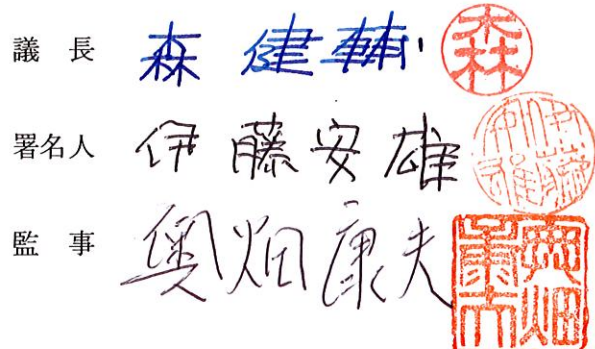 議長 森 健輔 森
署名人 伊藤安雄 伊藤安雄
監事 奥畑康夫 奥畑康夫